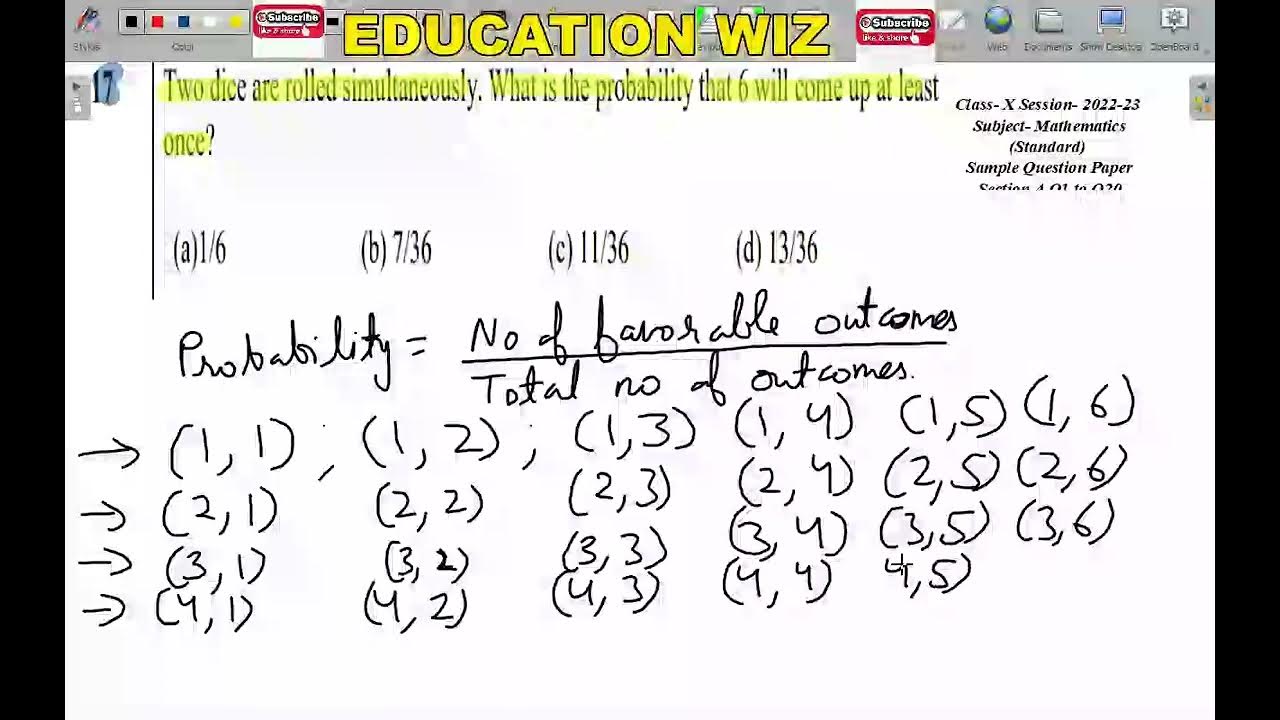 Subscribe
like & share
EDUCATION WIZ
Subscribe
like & share
Web Documents Show Desktop OpenBoard
17 Two dice are rolled simultaneously. What is the probability that 6 will come up at least
once?
Class- X Session- 2022-23
Subject- Mathematics
(Standard)
Sample Question Paper
Section A Q1 to Q20
(a)1/6 (b) 7/36 (c) 11/36 (d) 13/36
Probability = No of favorable outcomes
Total no of outcomes.
→ (1, 1) ; (1, 2) ; (1, 3) (1, 4) (1, 5) (1, 6)
→ (2, 1) (2, 2) (2, 3) (2, 4) (2, 5) (2, 6)
→ (3, 1) (3, 2) (3, 3) (3, 4) (3, 5) (3, 6)
→ (4, 1) (4, 2) (4, 3) (4, 4) 4, 5)